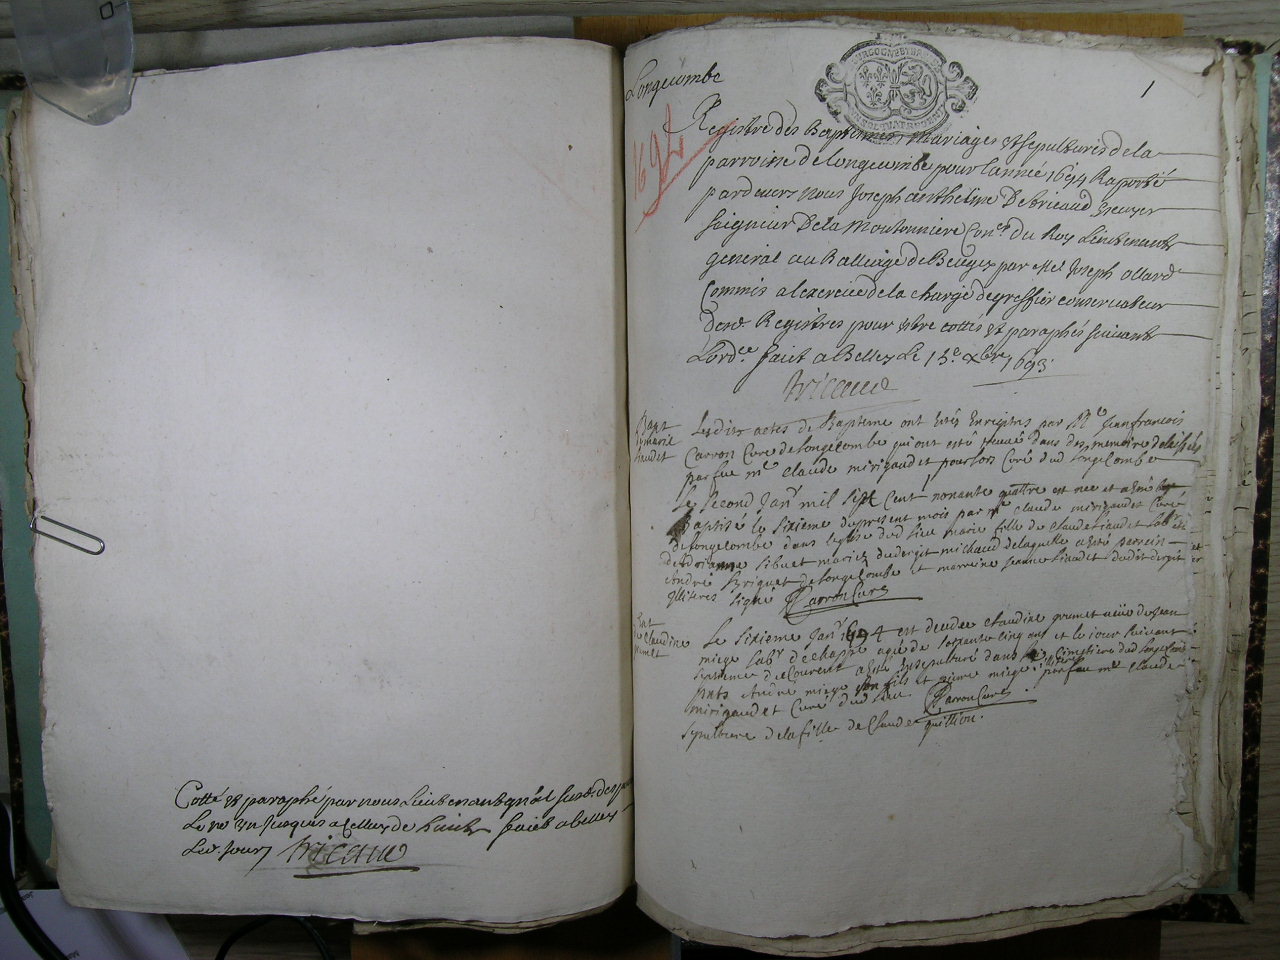 Cotté & paraphé par nous Lieutenant gñal susd. des
Le jusques a Celluy de huict faict a belley
Led. jour
Tricaud
Longecombe
1
1694
Registre des Baptesmes, Mariages & sepultures de la
parroisse de longecombe pour l'année 1694 Raporté
pardevers nous Joseph anthelme De tricaud Escuyer
seigneur De la Moutonniere Con.er du Roy Lieutenant
general au Balliage de Beugey par Me Joseph allard
Commis a lexercice de la charge de greffier conservateur
desd. Registres pour estre cottés & paraphés suivant
Lord.ce faict a Belley Le 13e xbre 1693
Tricaud
Bapt
marie
Liaudet
Lesdits actes de Bapteme ont Estés Enregistrés par Mre Jean francois
Carron Curé de longecombe qui ont esté trouvé dans des memoire
par feu mre Claude mirigaudet pour lors Curé dud longecombe
Le second Janr mil sixt Cent nonante quattre est nee et a esté
Baptisé le sixieme du present mois par mre claude mirigaudet Curé
de longecombe dans leglise dud lieu marie fille de Claude Liaudet labr
de Sibuet mariez michaud de laquelle a esté parrein
André de longecombe et marreine Jeanne Liaudet
illiteres signé Carron Curé
Ent
de Claudine
grumet
Le sixieme Janr 1694 est decedee claudine grumet veüe de Jean
miege labr agée de soixante cinq ans et le jour suivant
septieme du Courent a esté Ensepulturé dans le Cimetiere dud longecombe
pnts André miege son fils et pierre miege par feu mre claude
mirigaudet Curé dud lieu Carron Curé
sepulture de la fille de Claude quillion.